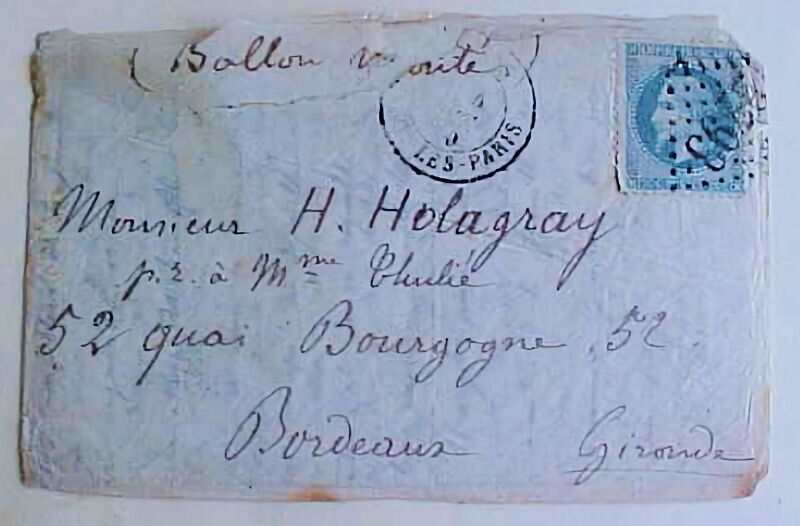 (Ballon monté)
LES-PARIS
Monsieur H. Holagray
p.r. à Mme Thulié
52 quai Bourgogne . 52.
Bordeaux Gironde